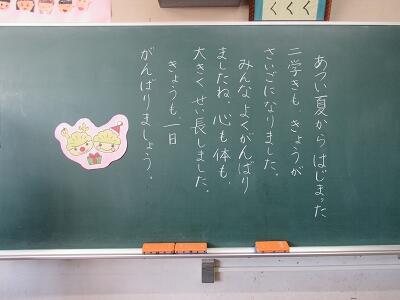 あつい夏からはじまった
二学きも、きょうが
さいごになりました。
みんなよくがんばり
ましたね。心も体も、
大きくせい長しました。
きょうも、一日
がんばりましょう。
くくく